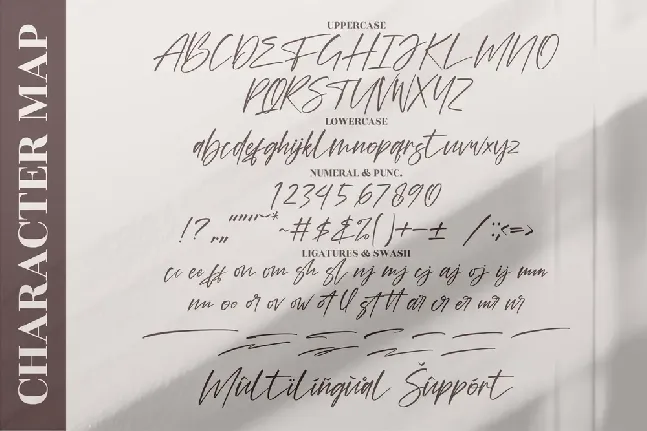 CHARACTER MAP
UPPERCASE
ABCDEFGHIJKLMNO
PQRSTUVWXYZ
LOWERCASE
abcdefghijklmnopqrstuvwxyz
NUMERAL & PUNC.
1234567890
~#$&%()+−± / :;<=>
LIGATURES & SWASH
cc ee ff on om sh sl nj mj cj aj oj ij mm
nn oo or ov ow ot ll st tt ar cr er ur ir
Mùltilingùal Šuppórt